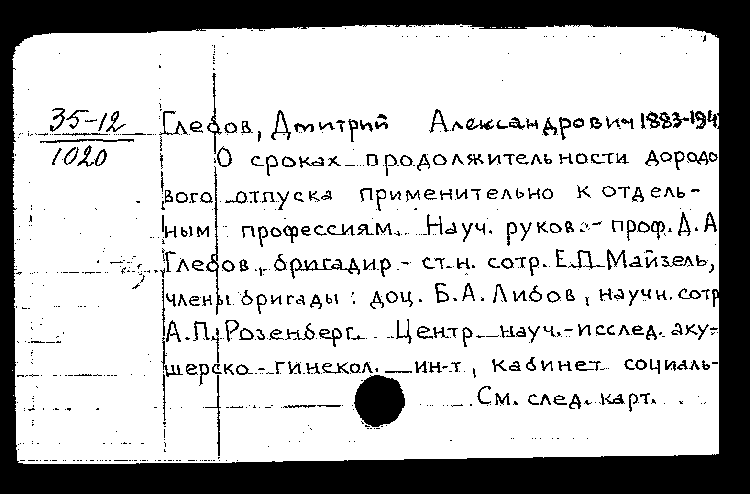 35-12
1020
Глебов, Дмитрий Александрович 1883-194
О сроках продолжительности дородо
вого отпуска применительно к отдель-
ным профессиям. Науч. руков.- проф. Д.А
Глебов, бригадир - ст. н. сотр. Е.П. Майзель,
члены бригады: доц. Б.А. Либов, научн. сотр
А.П. Розенберг. Центр. науч.-исслед. аку-
шерско-гинекол. ин-т, кабинет социаль-
См. след. карт.